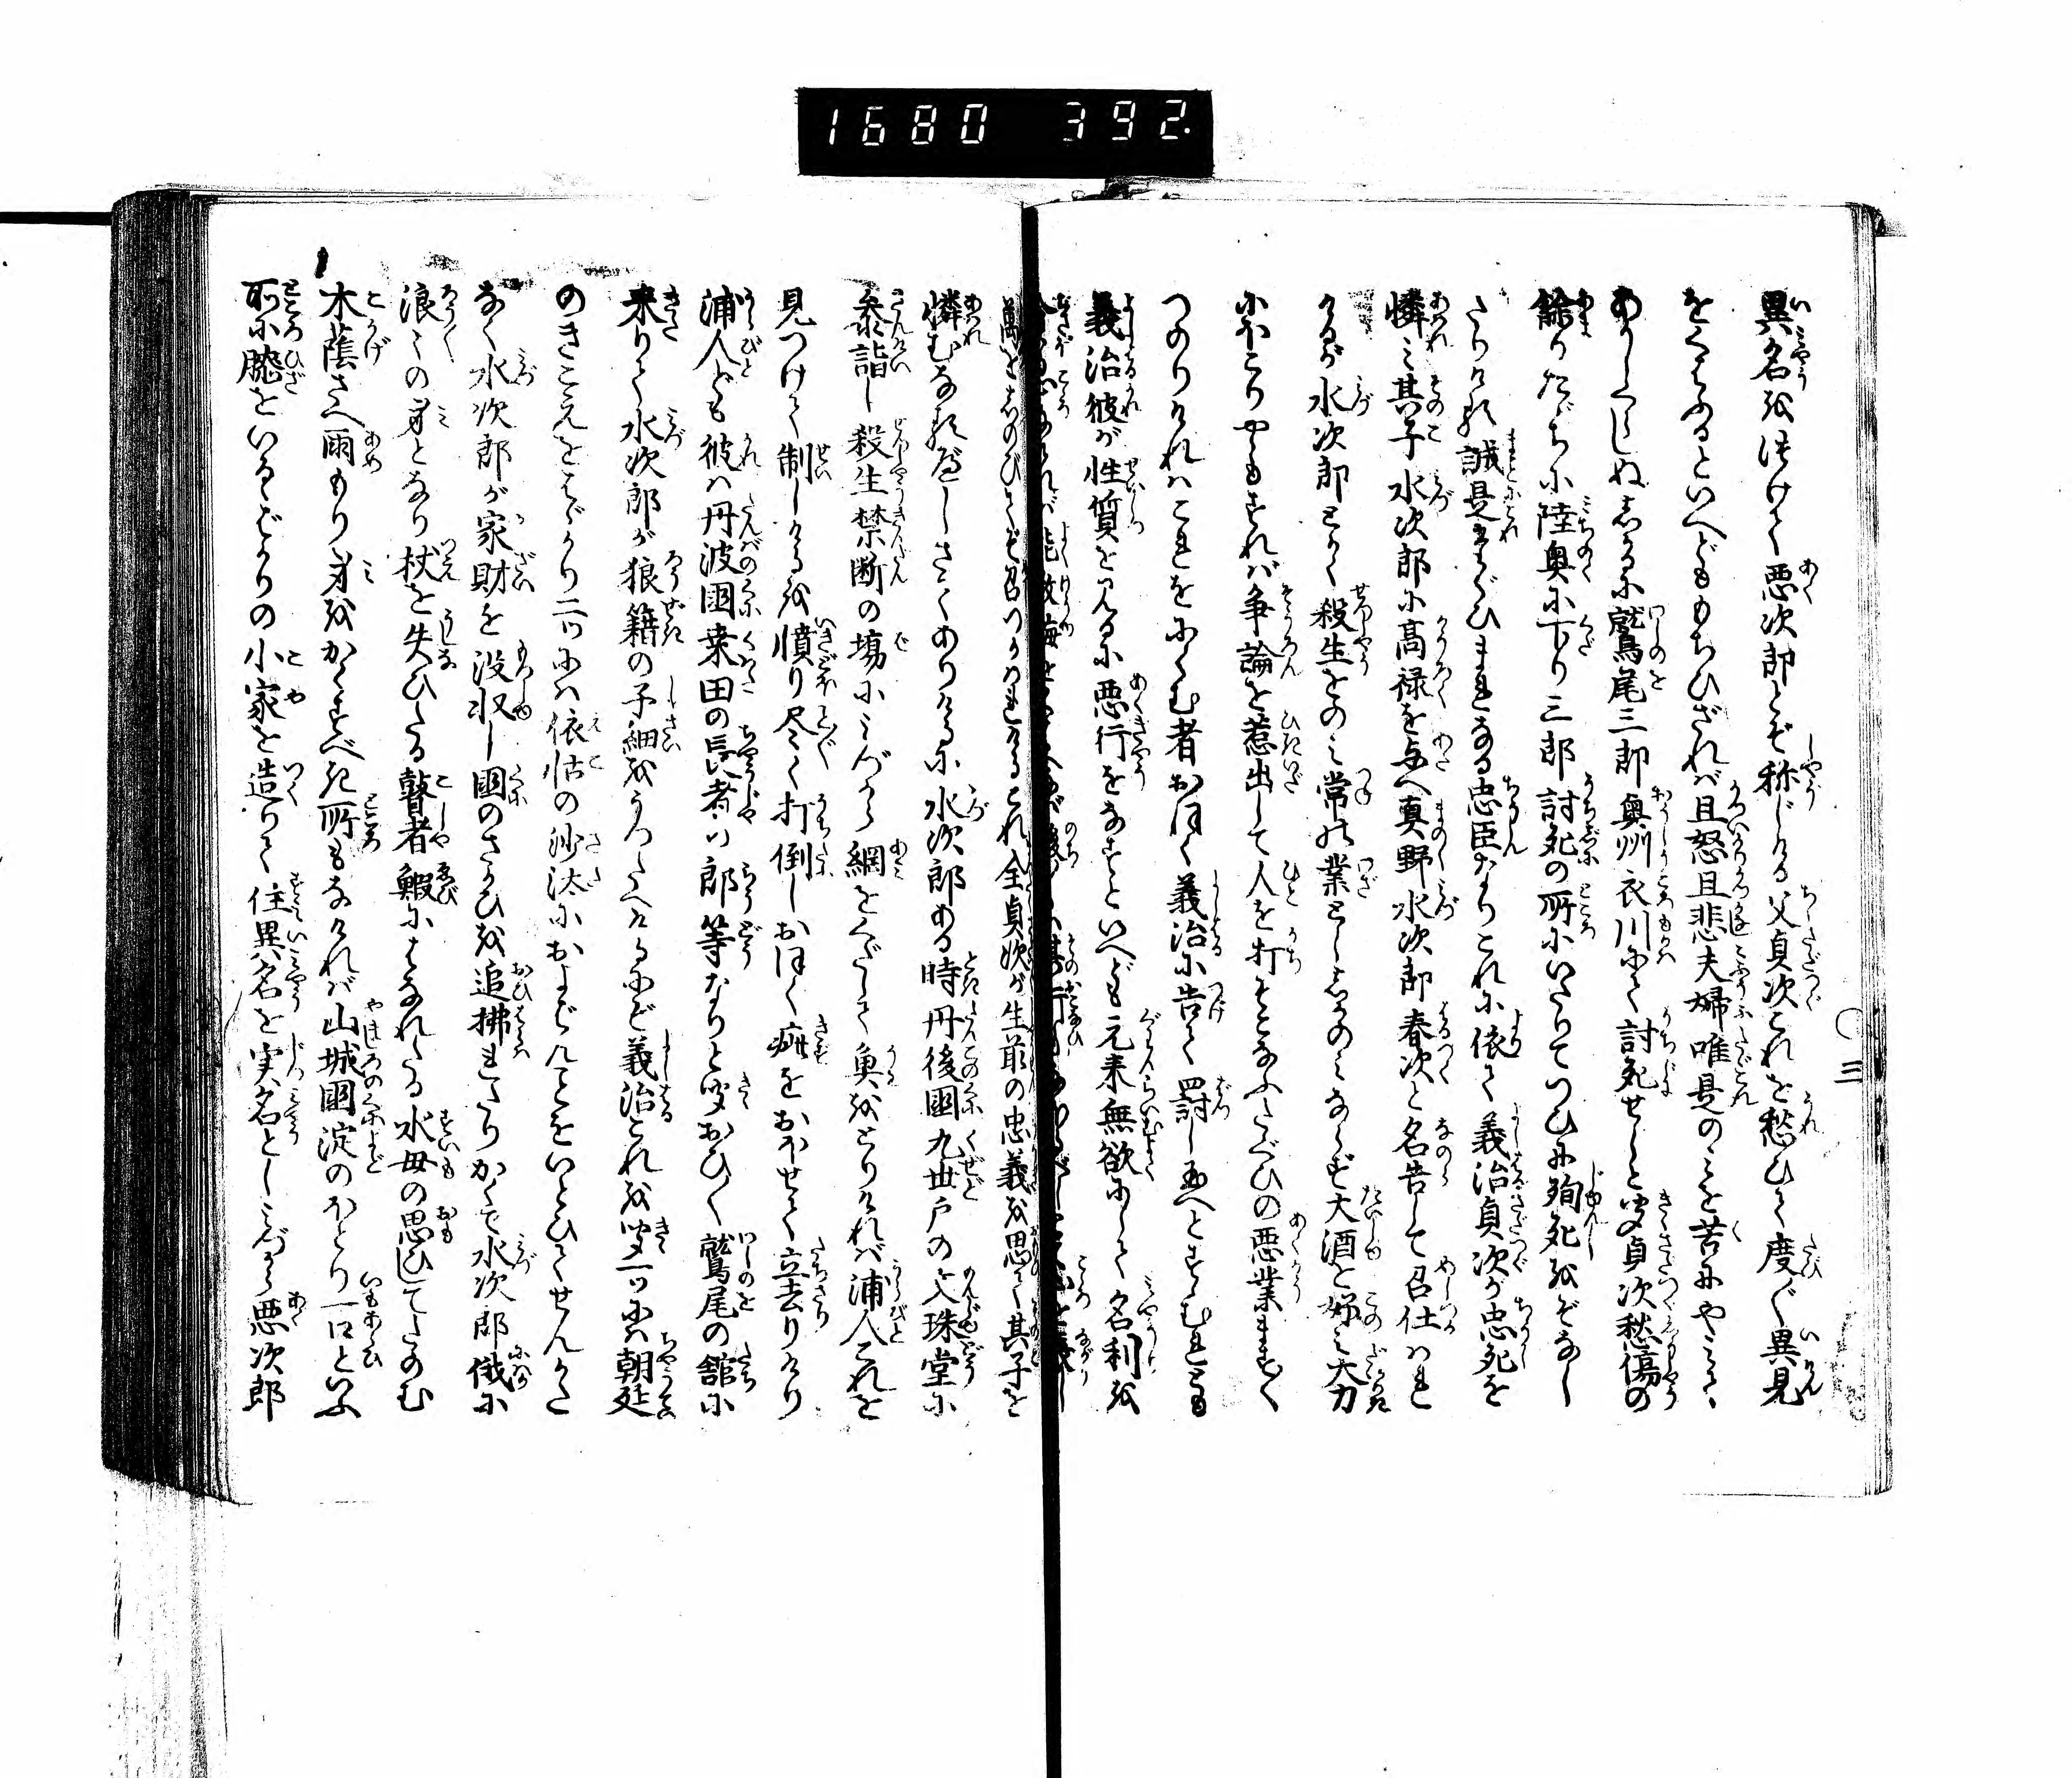 1680 392.
三
異名を付けて悪次郎とぞ称じける父貞次これを愁ひて度〻異見
をくはふるといへどももちひざれば且怒且悲夫婦唯是のみを苦にやみ
あかしくらしぬしかるに鷲尾三郎奥州衣川にて討死せしと聞貞次愁傷の
餘りたゞちに陸奥に下り三郎討死の所にいたりてつひに殉死をぞなし
たりける誠是たぐひまれなる忠臣なりこれに依て義治貞次が忠死を
憐み其子水次郎に高禄を与へ真野水次郎春次と名告して召仕はれ
けるが水次郎とかく殺生をのみ常の業としそのみならず大酒を好み大力
にほこりやゝもすれば争論を惹出して人を打そこなふたぐひの悪業ますく
つのりければこれをにくむ者おほく義治に告て罰し玉へとすゝむれども
義治彼が性質を見るに悪行をなすといへども元来無欲にして名利を
萬をしのびてぞ召つかはれけるこれ全貞次が生前の忠義を思て其子を
憐むなるべしさてありけるに水次郎ある時丹後國九世戸の文珠堂に
参詣し殺生禁断の場にみづから網をくだして魚をとりければ浦人これを
見つけて制しけるを憤り尽く打倒しおほく疵をおはせて立去りけり
浦人ども彼は丹波國桑田の長者の郎等なりと聞おひ〳〵鷲尾の舘に
来りて水次郎が狼籍の子細をうつたへけるにぞ義治これを聞一ッには朝廷
のきこえをはゞかり二ッには依怙の沙汰におよばんことをいとひてせんかた
なく水次郎が家財を没収し國のさかひを追拂れたりかくて水次郎俄に
浪〻の身となり杖を失ひたる瞽者鰕にはなれたる水母の思ひしてたのむ
木蔭さへ雨もり身をかくすべき所もなければ山城國淀のほとり一口といふ
所に膝をいるゝばかりの小家を造りて住異名を実名としみづから悪次郎